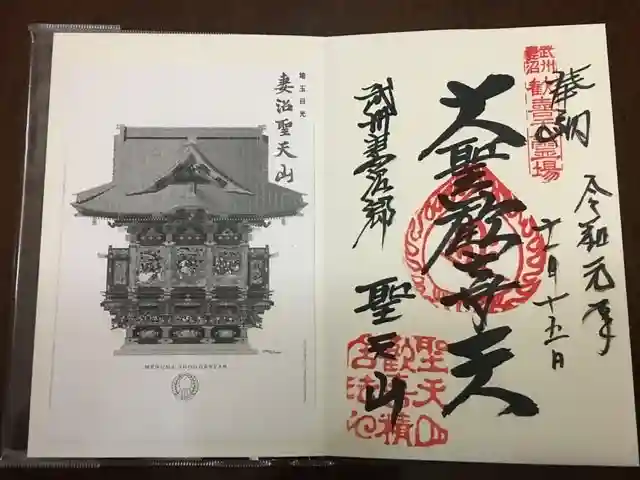 武州
妻沼
歓喜天霊場
奉納
令和元年
十一月十五日
大聖歓喜天
武州妻沼郷
聖天山
聖天山
歓喜
埼玉日光
妻沼聖天山
MENUMA SHODENZAN